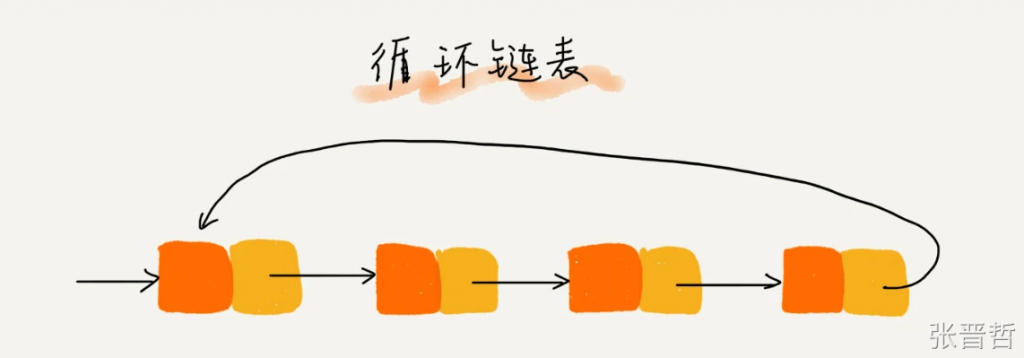 循环链表
张晋哲